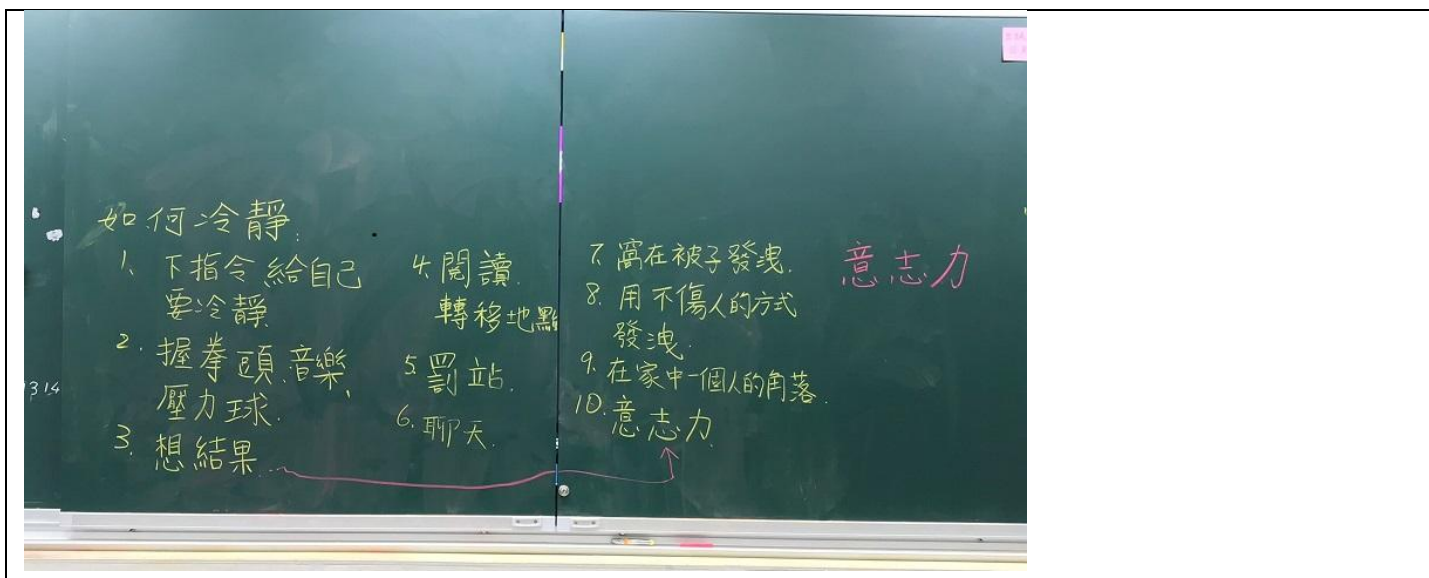 如何冷靜:
1、下指令給自己
要冷靜
2. 握拳頭、音樂、
壓力球.
3. 想結果
4. 閱讀.
轉移地點
5. 罰站.
6. 聊天.
7. 窩在被子發洩.
8. 用不傷人的方式
發洩.
9. 在家中一個人的角落.
10. 意志力
意志力